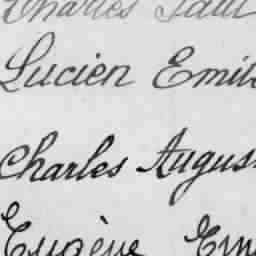 Charles Paul
Lucien Emile
Charles Augus
Eugène Em